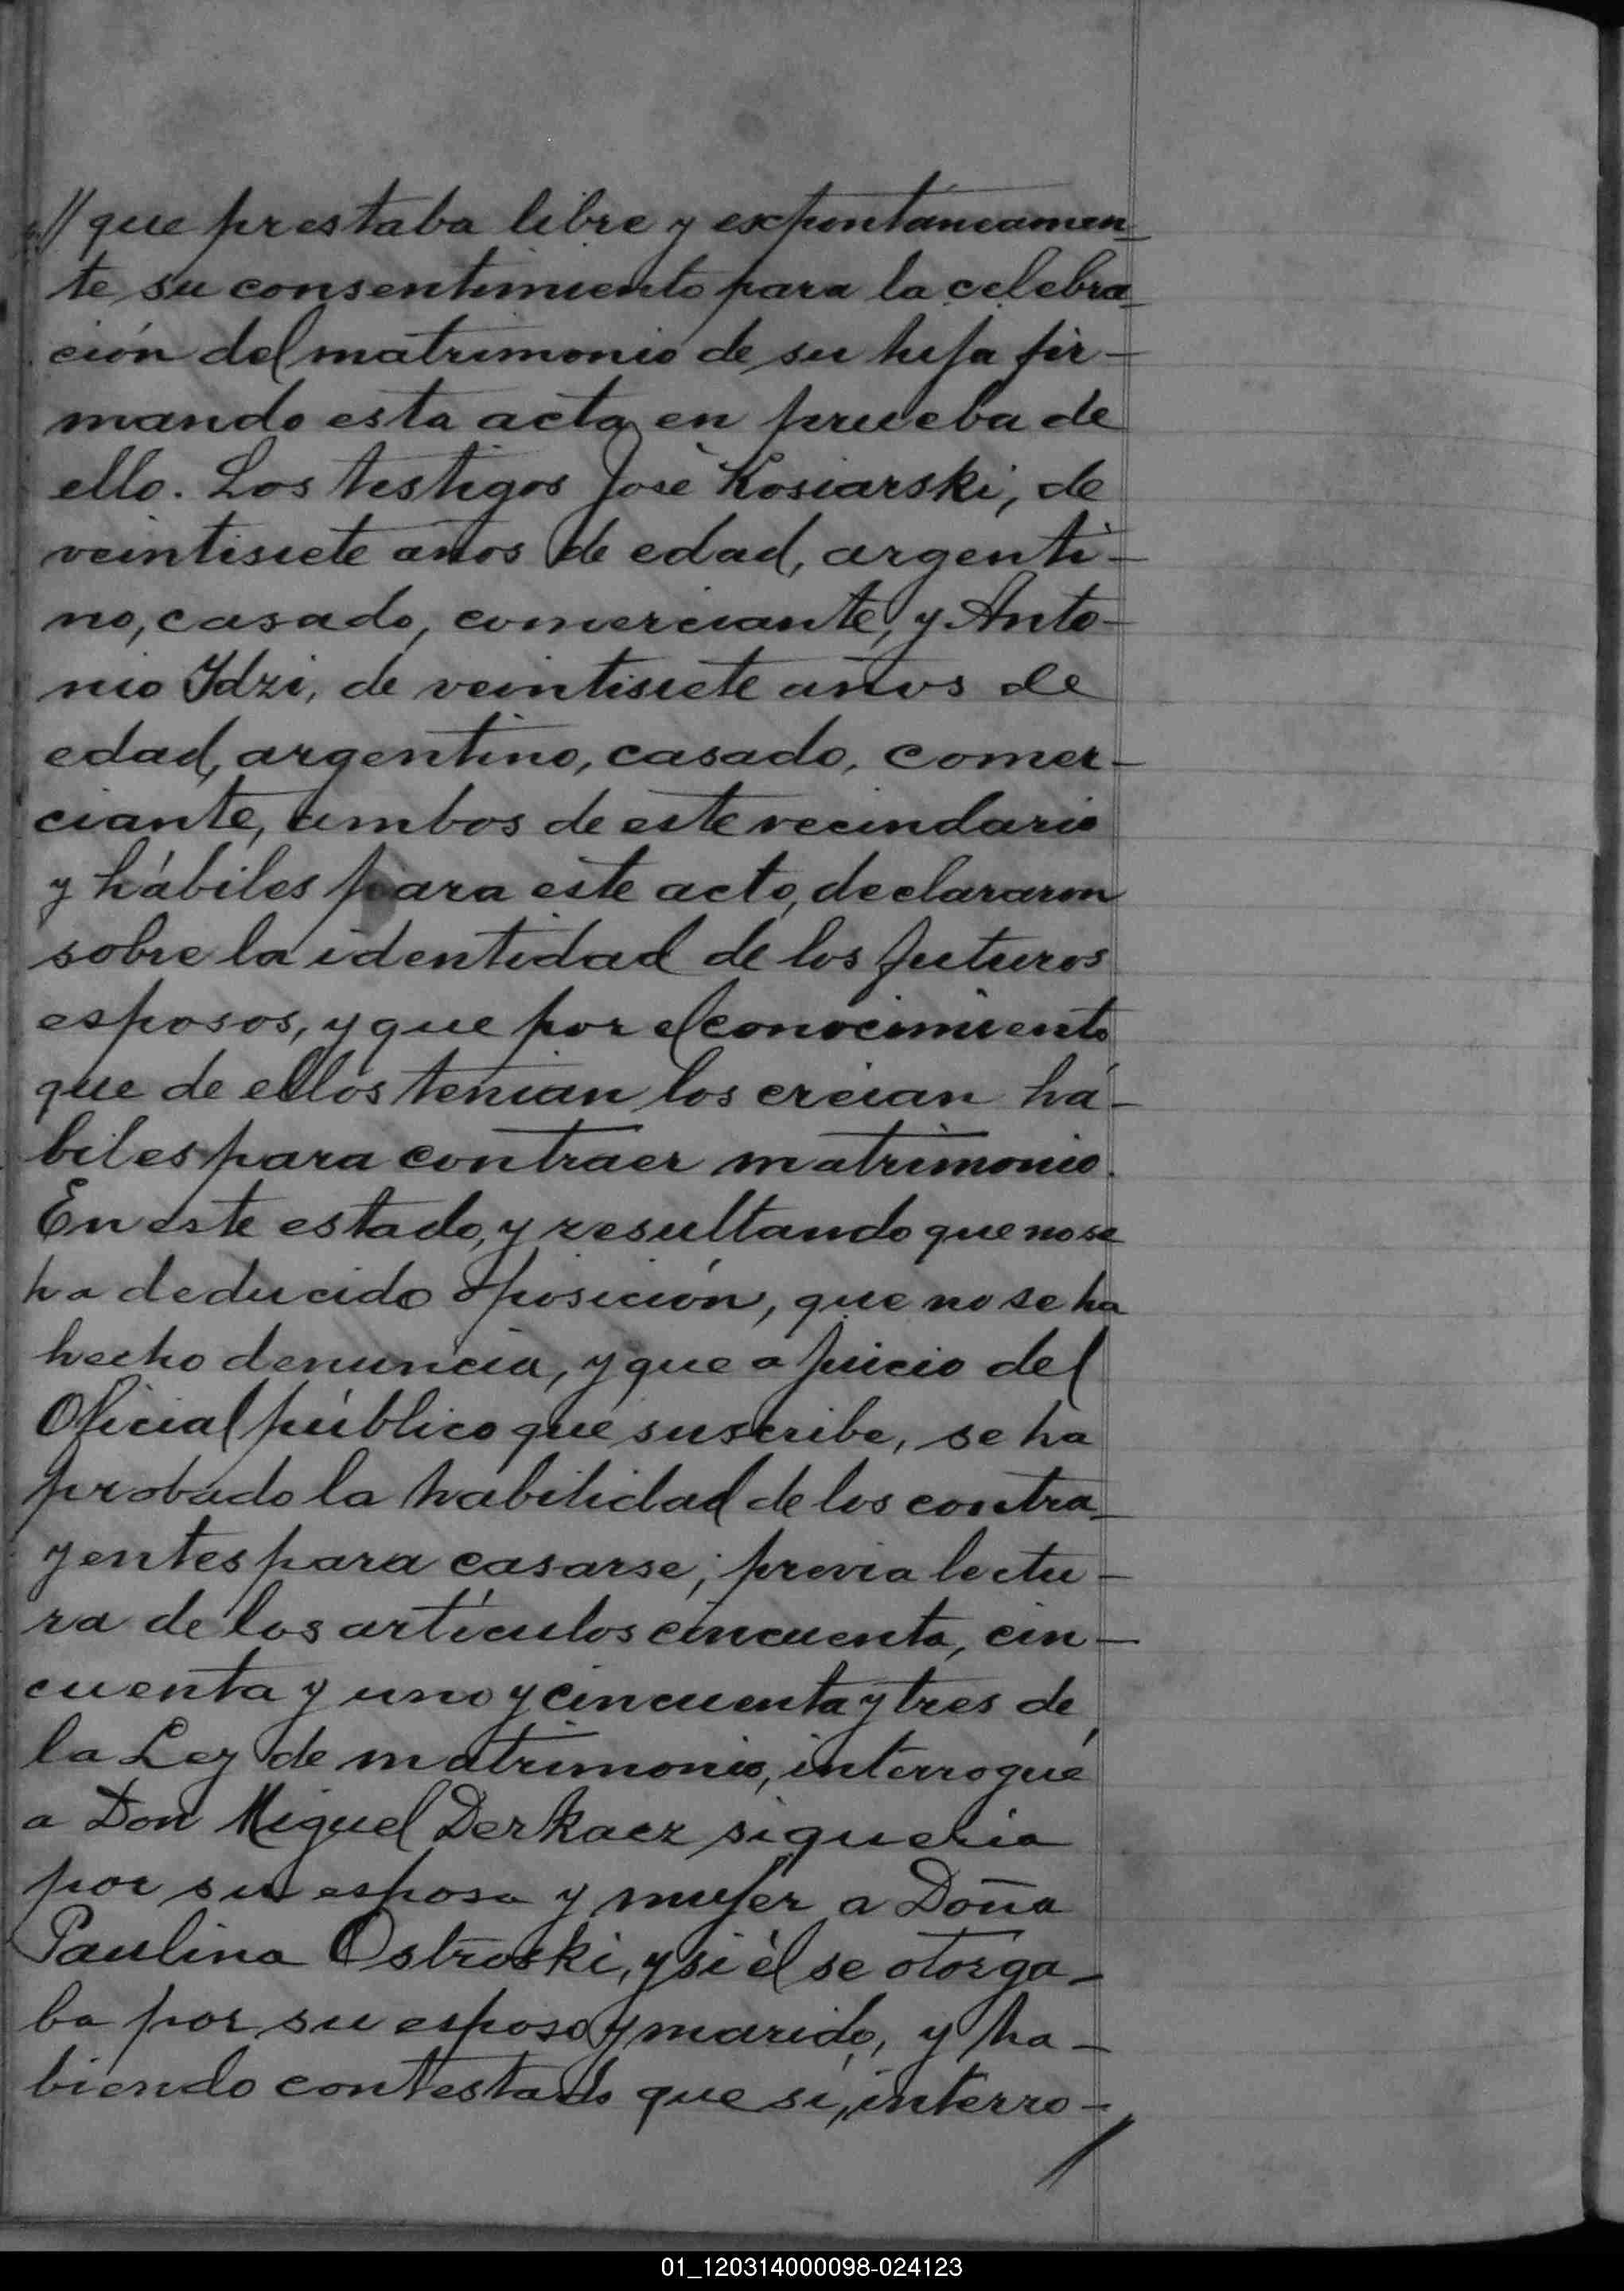 // que prestaba libre y expontáneamen-
te su consentimiento para la celebra-
ción del matrimonio de su hija fir-
mando esta acta en prueba de
ello. Los testigos José Kosiarski, de
veintisiete años de edad, argenti-
no, casado, comerciante, y Anto-
nio Idzi, de veintisiete años de
edad, argentino, casado, comer-
ciante, ambos de este vecindario
y hábiles para este acto, declararon
sobre la identidad de los futuros
esposos, y que por el conocimiento
que de ellos tenian los creian há-
biles para contraer matrimonio.
En este estado, y resultando que no se
ha deducido oposición, que no se ha
hecho denuncia, y que a juicio del
Oficial público que suscribe, se ha
probado la habilidad de los contra-
yentes para casarse; previa lectu-
ra de los artículos cincuenta, cin-
cuenta y uno y cincuenta y tres de
la Ley de matrimonio, interrogué
a Don Miguel Derkacz si queria
por su esposa y mujer a Doña
Paulina Ostroski, y si él se otorga-
ba por su esposo y marido, y ha-
biendo contestado que sí, interro-
/
01_120314000098-024123